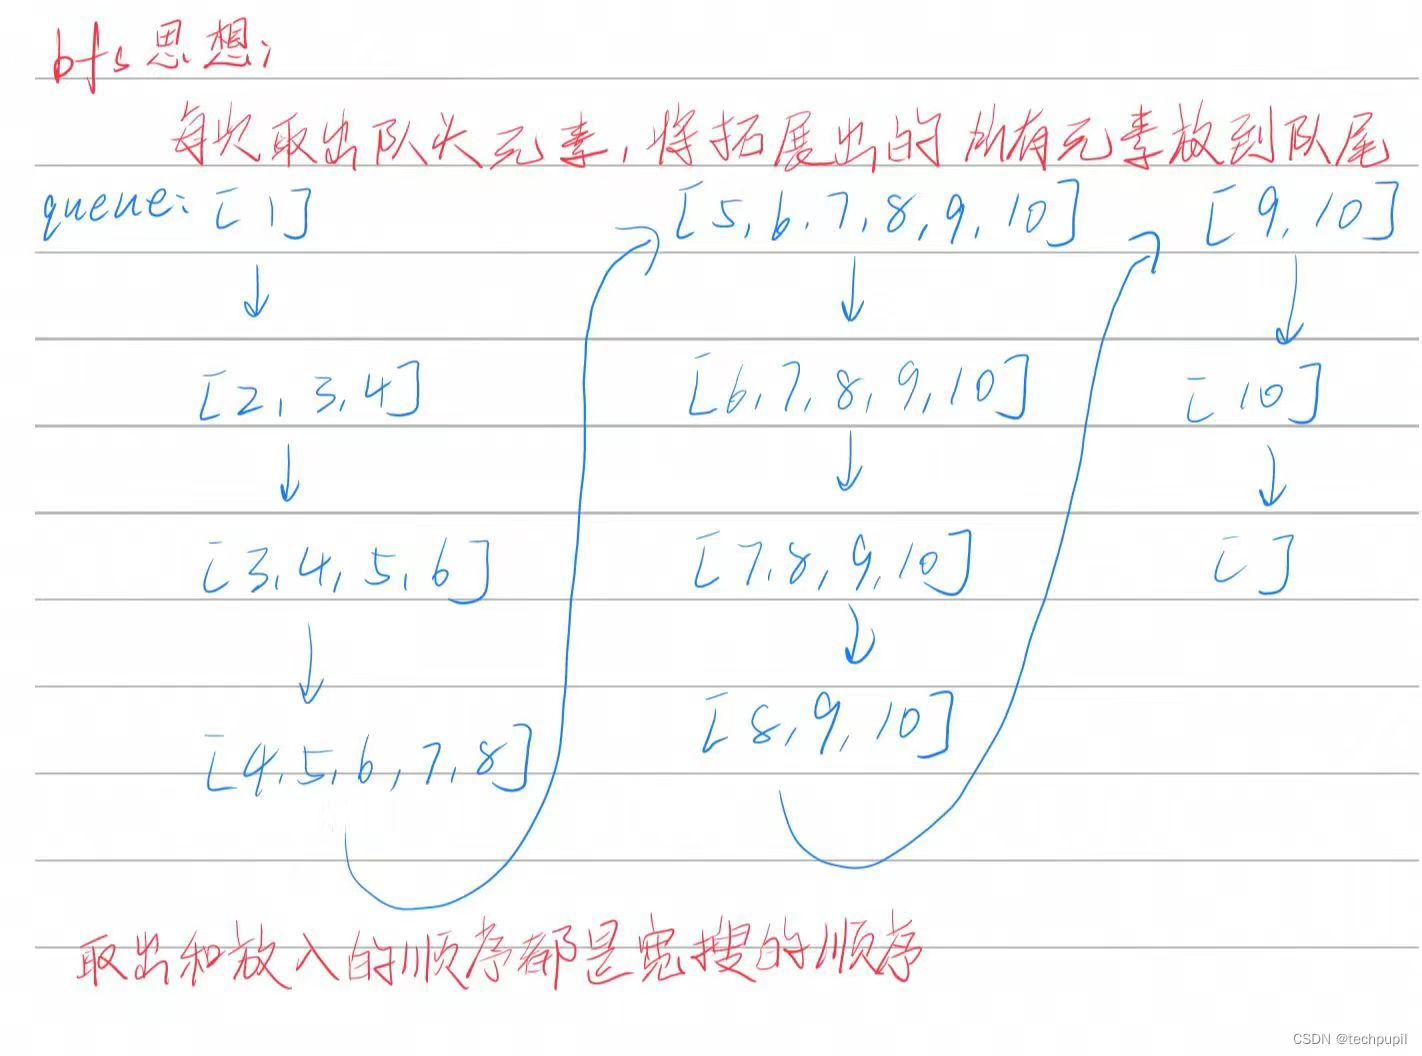 bfs思想;
每次取出队头元素,将拓展出的所有元素放到队尾
queue: [1]
[2, 3, 4]
[3, 4, 5, 6]
[4, 5, 6, 7, 8]
[5, 6, 7, 8, 9, 10]
[6, 7, 8, 9, 10]
[7, 8, 9, 10]
[8, 9, 10]
[9, 10]
[10]
[]
取出和放入的顺序都是宽搜的顺序
CSDN @techpupil